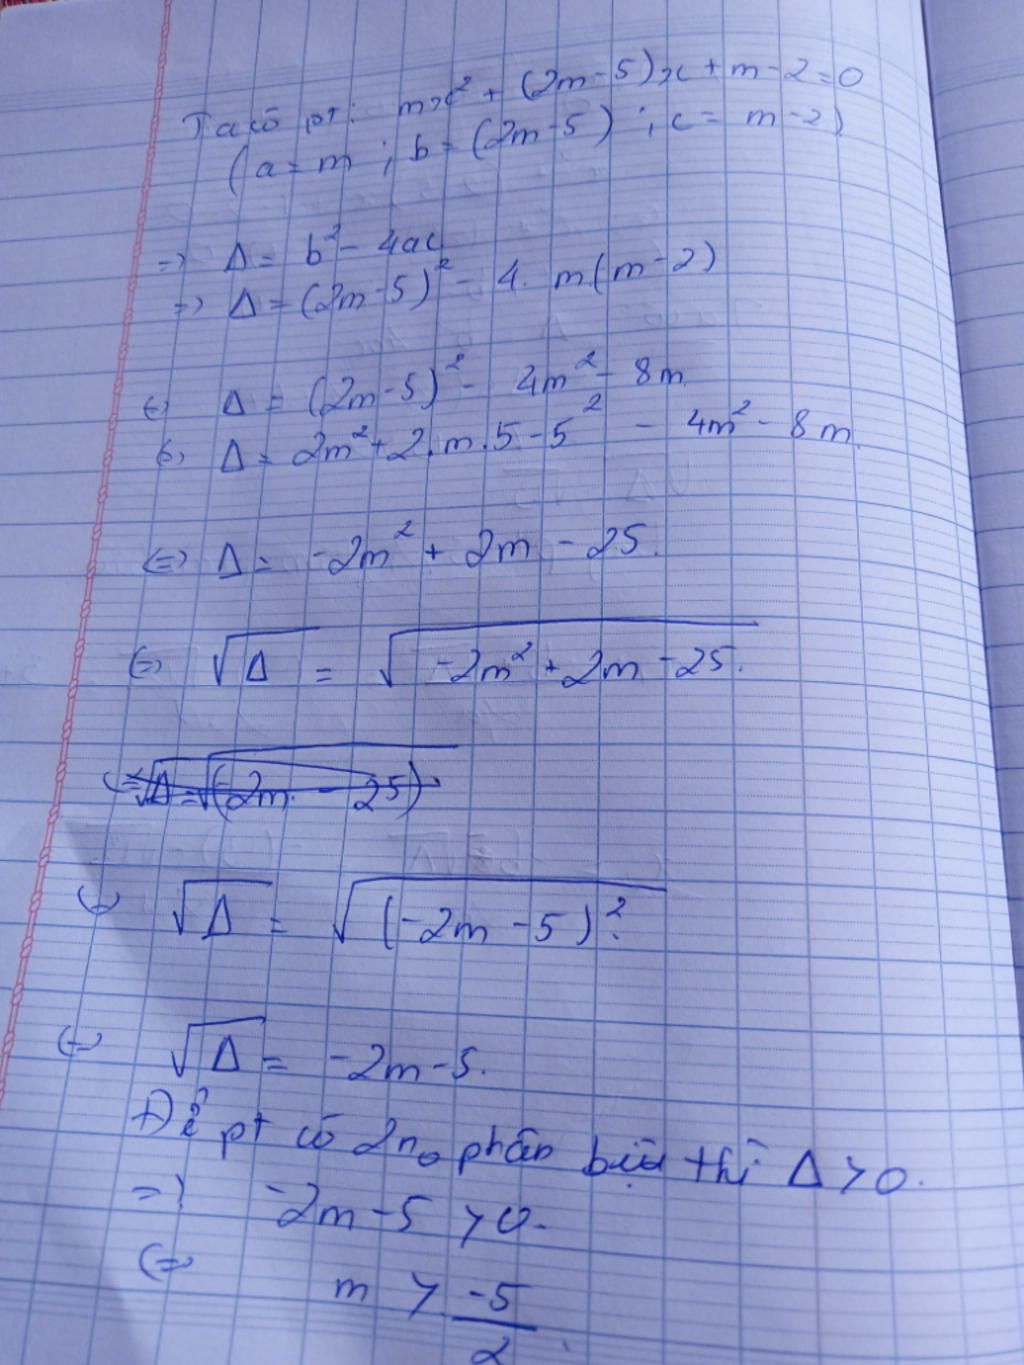 Ta có pt: mx² + (2m-5)x + m-2=0
(a=m ; b=(2m-5) ; c= m-2)
=> Δ= b²- 4ac
=> Δ=(2m-5)² - 4. m(m-2)
(=) Δ = (2m-5)² - 4m² - 8m
(=) Δ= 2m²+2.m.5-5² - 4m² - 8m.
(=) Δ= -2m² + 2m - 25.
(=) √Δ = √-2m²+2m-25.
(=) √Δ=√(2m - 25)
(=) √Δ = √(-2m-5)².
(=) √Δ = -2m-5.
Để pt có 2n₀ phân biệt thì Δ>0.
=> -2m-5 >0.
(=) m > -5/2.